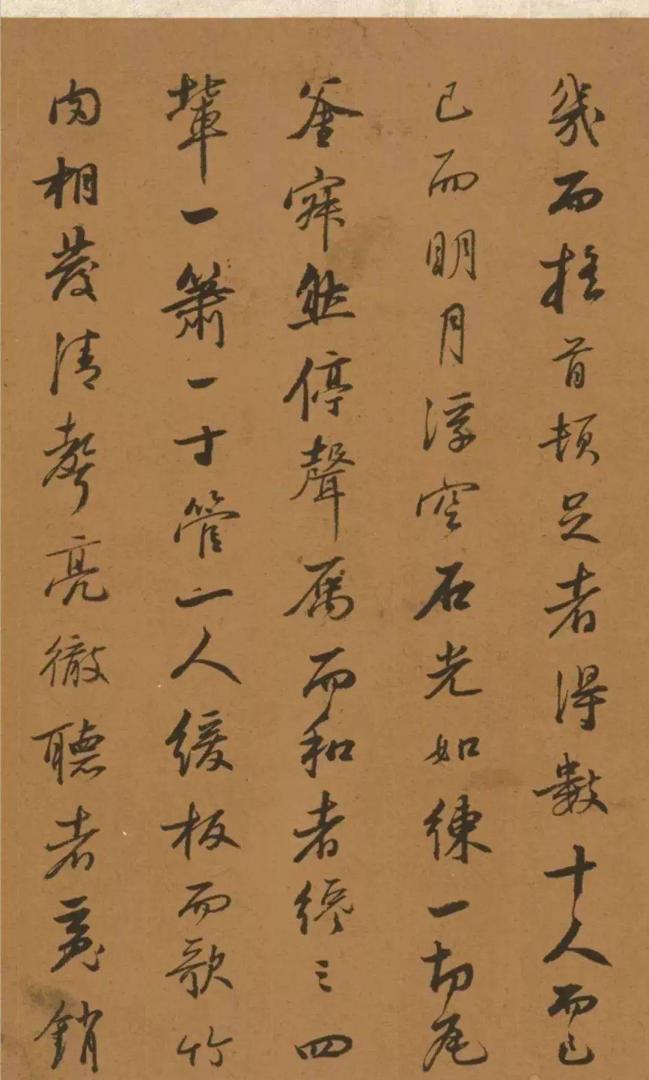 幾而搖首頓足者得數十人而已
已而明月浮空石光如練一切瓦
釜寂然停聲属而和者纔三四
輩一簫一寸管一人緩板而歌竹
肉相發清聲亮徹聽者魂銷